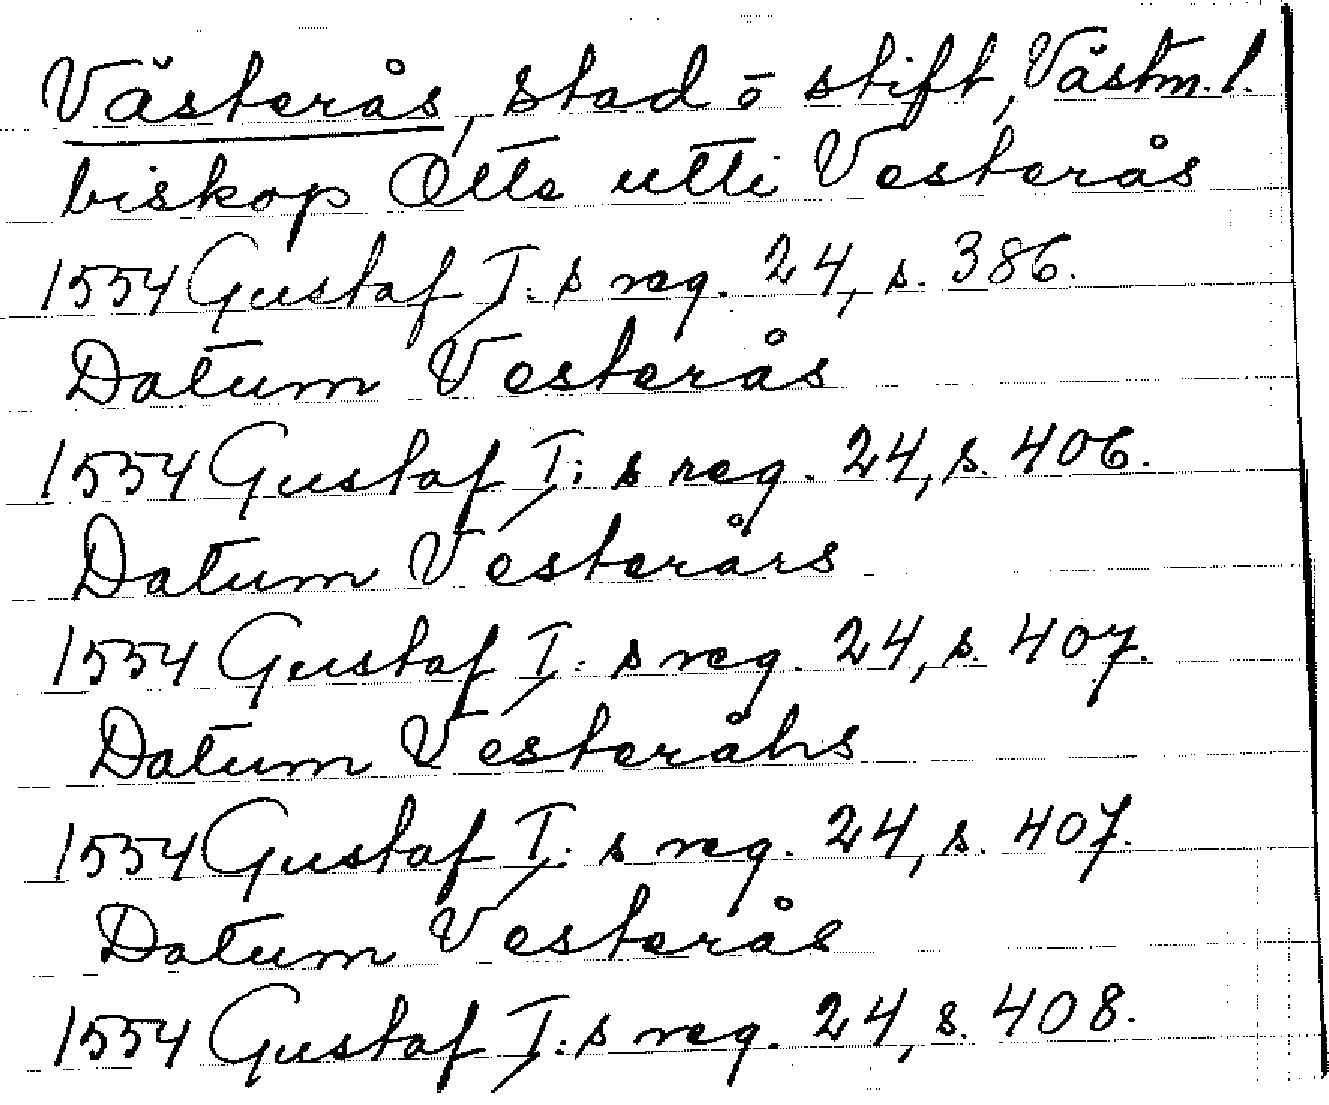 Västerås, stad ō stift, Västm. l.
biskop Otte utti Vesterås
1554 Gustaf I:s reg. 24, s. 386.
Datum Vesterås
1554 Gustaf I:s reg. 24, s. 406.
Datum Vesterårs
1554 Gustaf I:s reg. 24, s. 407.
Datum Vesteråhs
1554 Gustaf I:s reg. 24, s. 407.
Datum Vesterås
1554 Gustaf I:s reg. 24, s. 408.